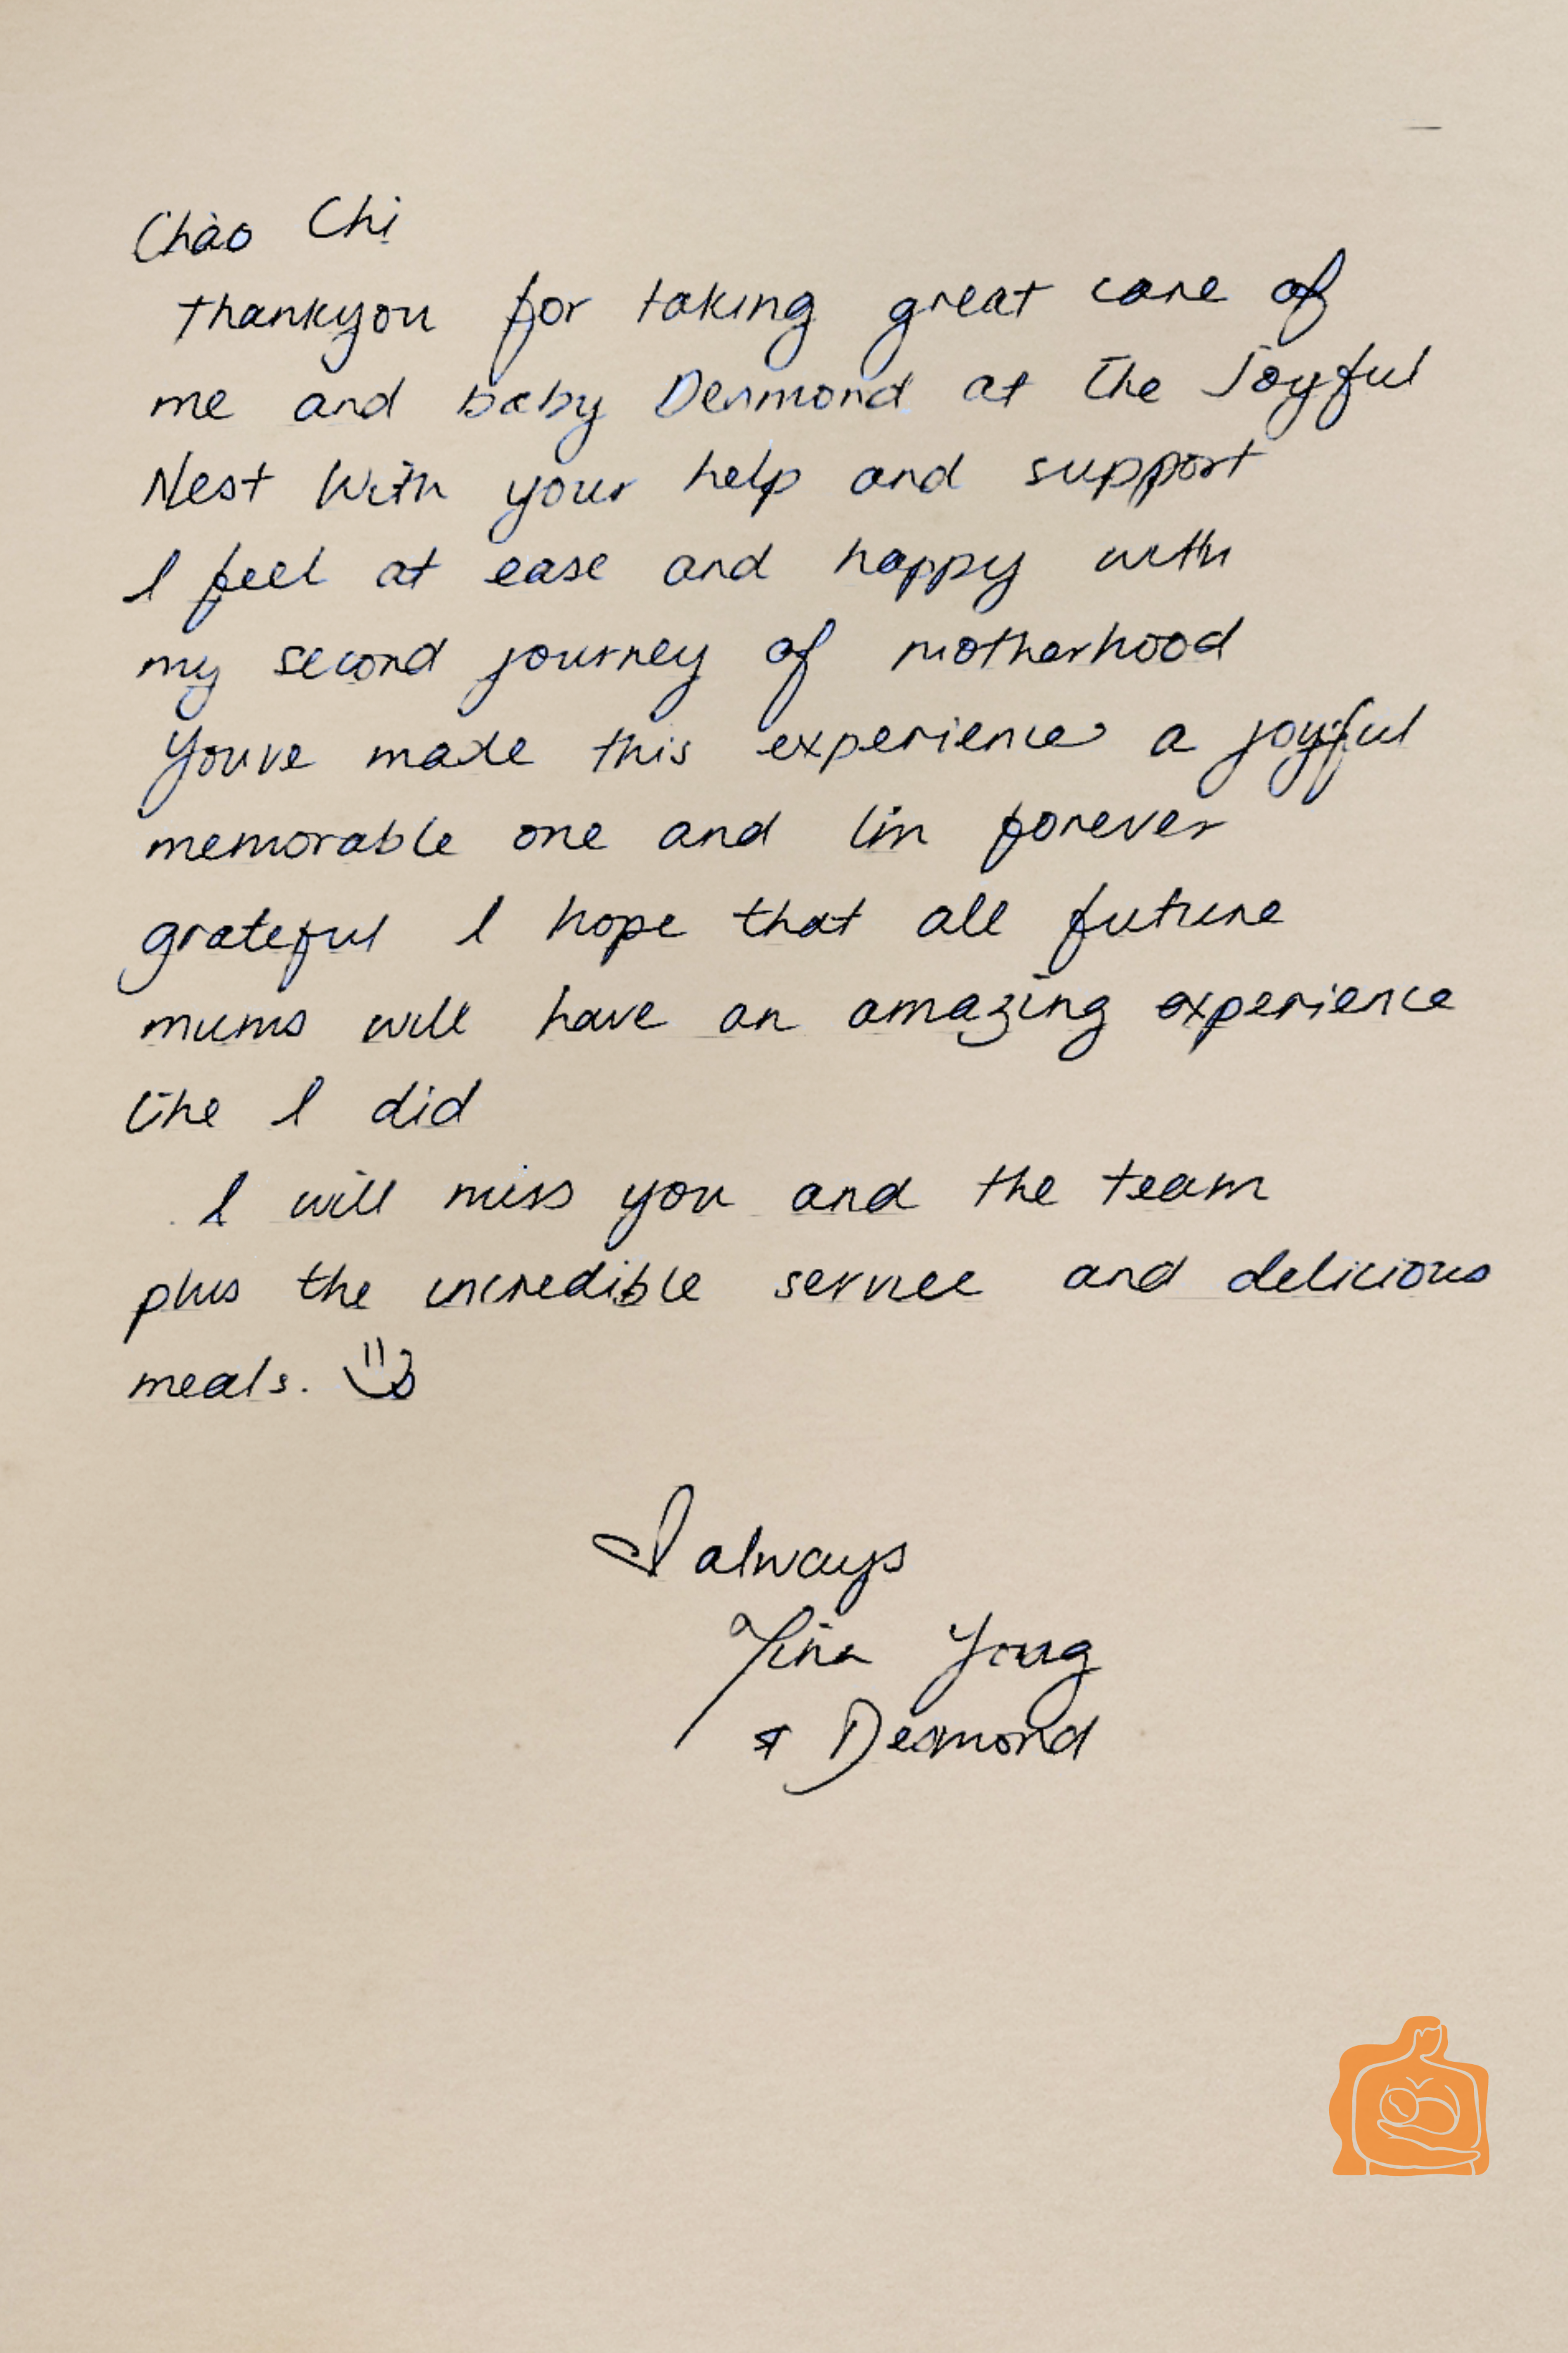 Chào Chị
thankyou for taking great care of
me and baby Desmond at the Joyful
Nest With your help and support
I feel at ease and happy with
my second journey of motherhood
Youve made this experience a joyful
memorable one and I'm forever
grateful I hope that all future
mums will have an amazing experience
like I did
I will miss you and the team
plus the incredible service and delicious
meals.
always
Tina Yong
& Desmond